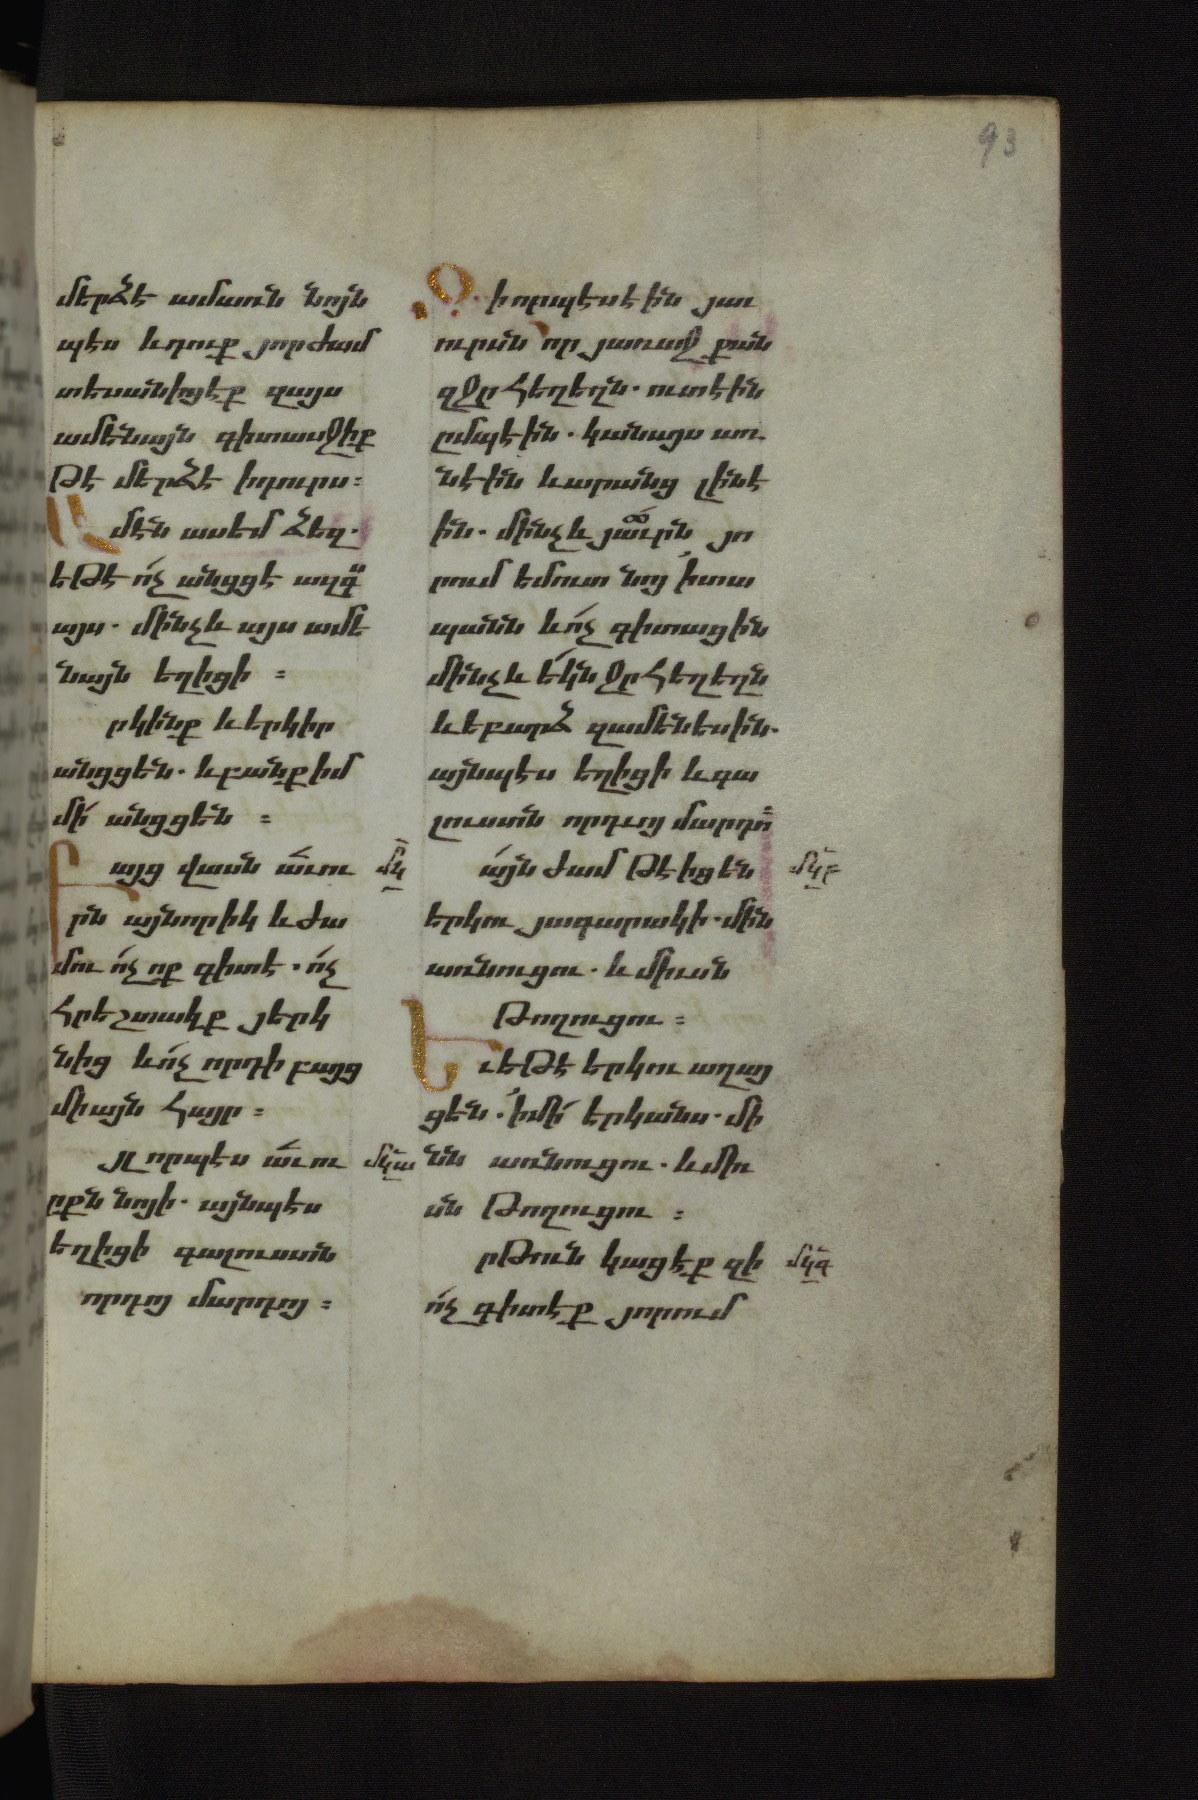 93
մերձէ ամառն նոյն
պէս և դուք յորժամ
տեսանիցէք զայս
ամենայն գիտասջիք
թէ մերձէ ի դուրս։
Ամէն ասեմ ձեզ.
եթէ ոչ անցցէ ազգ
այս. մինչև այս ամե
նայն եղիցի ։
րկինք և երկիր
անցցեն. և բանք իմ
մի անցցեն ։
Բայց վասն աւու
րն այնորիկ և ժա
մու ոչ ոք գիտէ. ոչ
հրեշտակք յերկ
նից և ոչ որդի բայց
միայն հայր ։
յլ որպէս աւու
րքն նոյի. այնպէս
եղիցի գալուստն
որդոյ մարդոյ ։
մի
միա
Զի որպէս էին յաւ
ուրսն որ յառաջ քան
զջրհեղեղն. ուտէին
ըմպէին. կանայս առ
նէին և արանց լինէ
ին. մինչև յաւրն յո
րում եմուտ նոյ ի տա
պանն և ոչ գիտացին
մինչև եկն ջրհեղեղն
և եբարձ զամենեսին.
այնպէս եղիցի և գա
լուստն որդւոյ մարդո
այն ժամ թէ իցեն
երկու յագարակի. մին
առնուցու. և միւսն
թողուցու ։
Եւ եթէ երկու աղայ
ցեն. ի մի երկանս. մի
նն առնուցու. և միւ
սն թողուցու ։
րթուն կացէք զի
ոչ գիտէք յորում
մկբ
մկգ